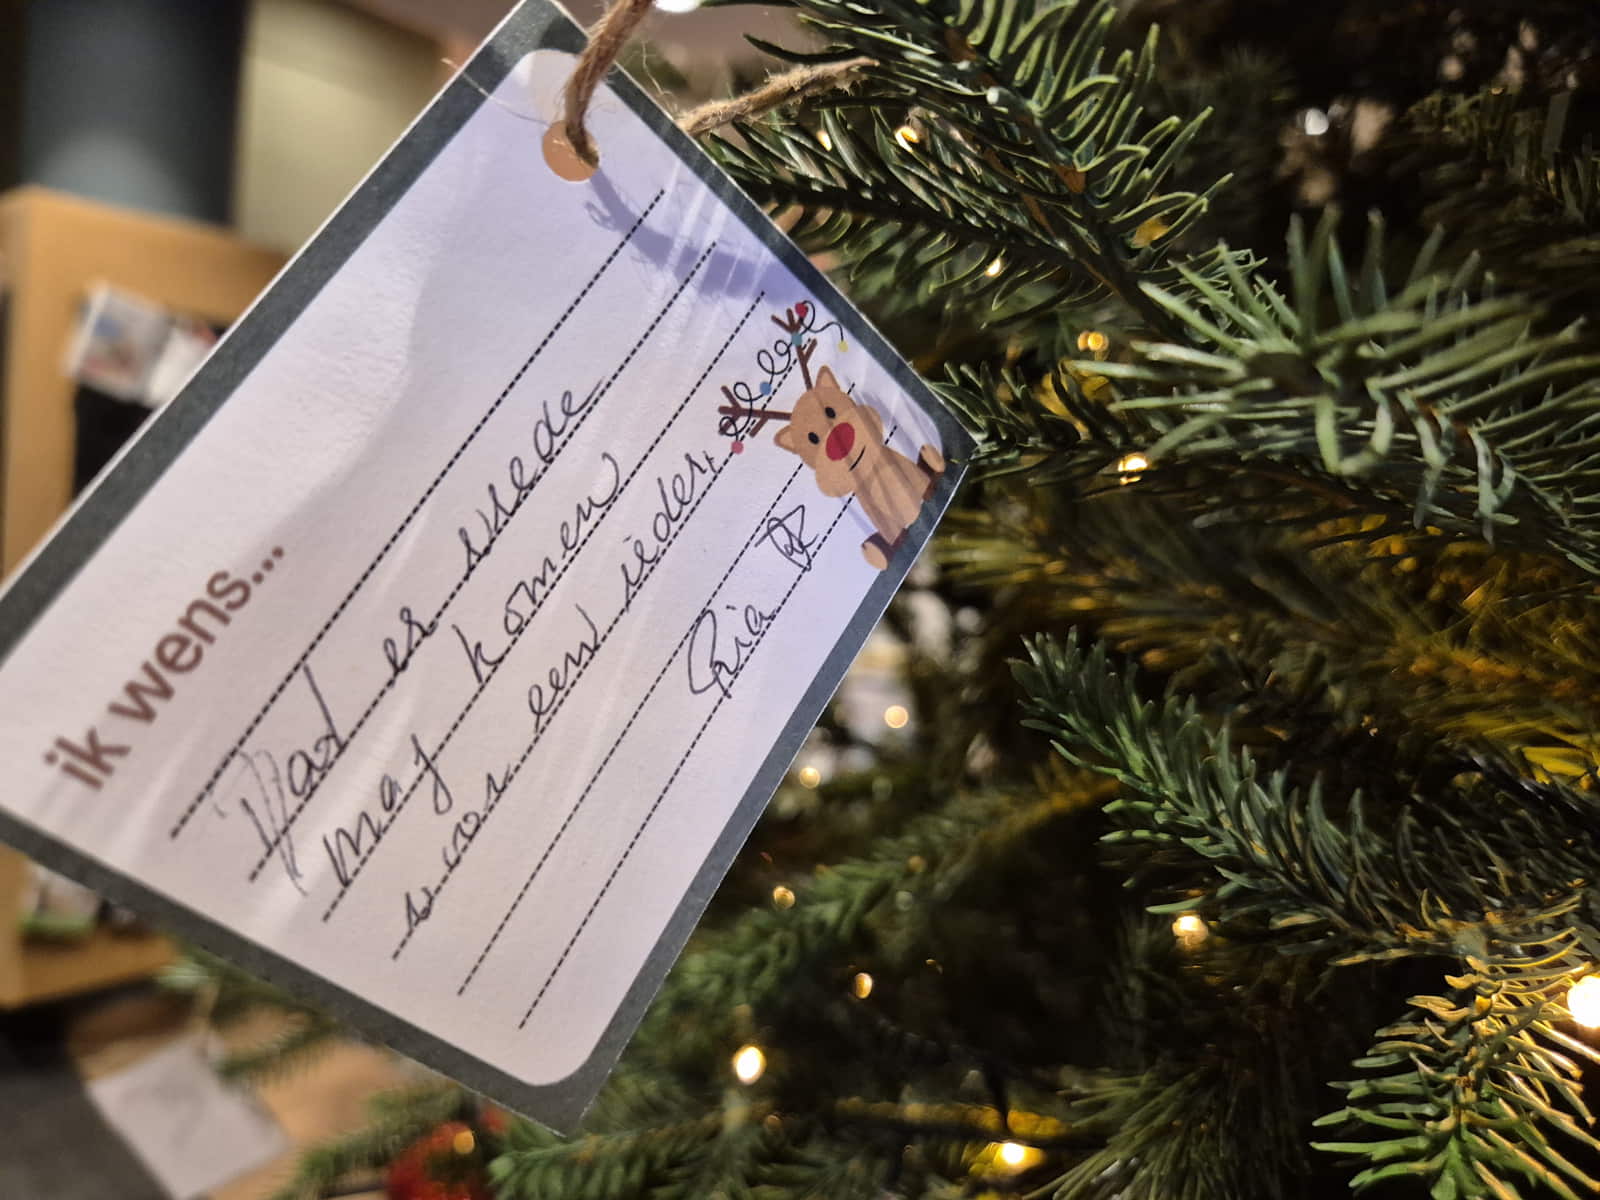 ik wens...
Dat er vrede
mag komen
voor een ieder,
Ria